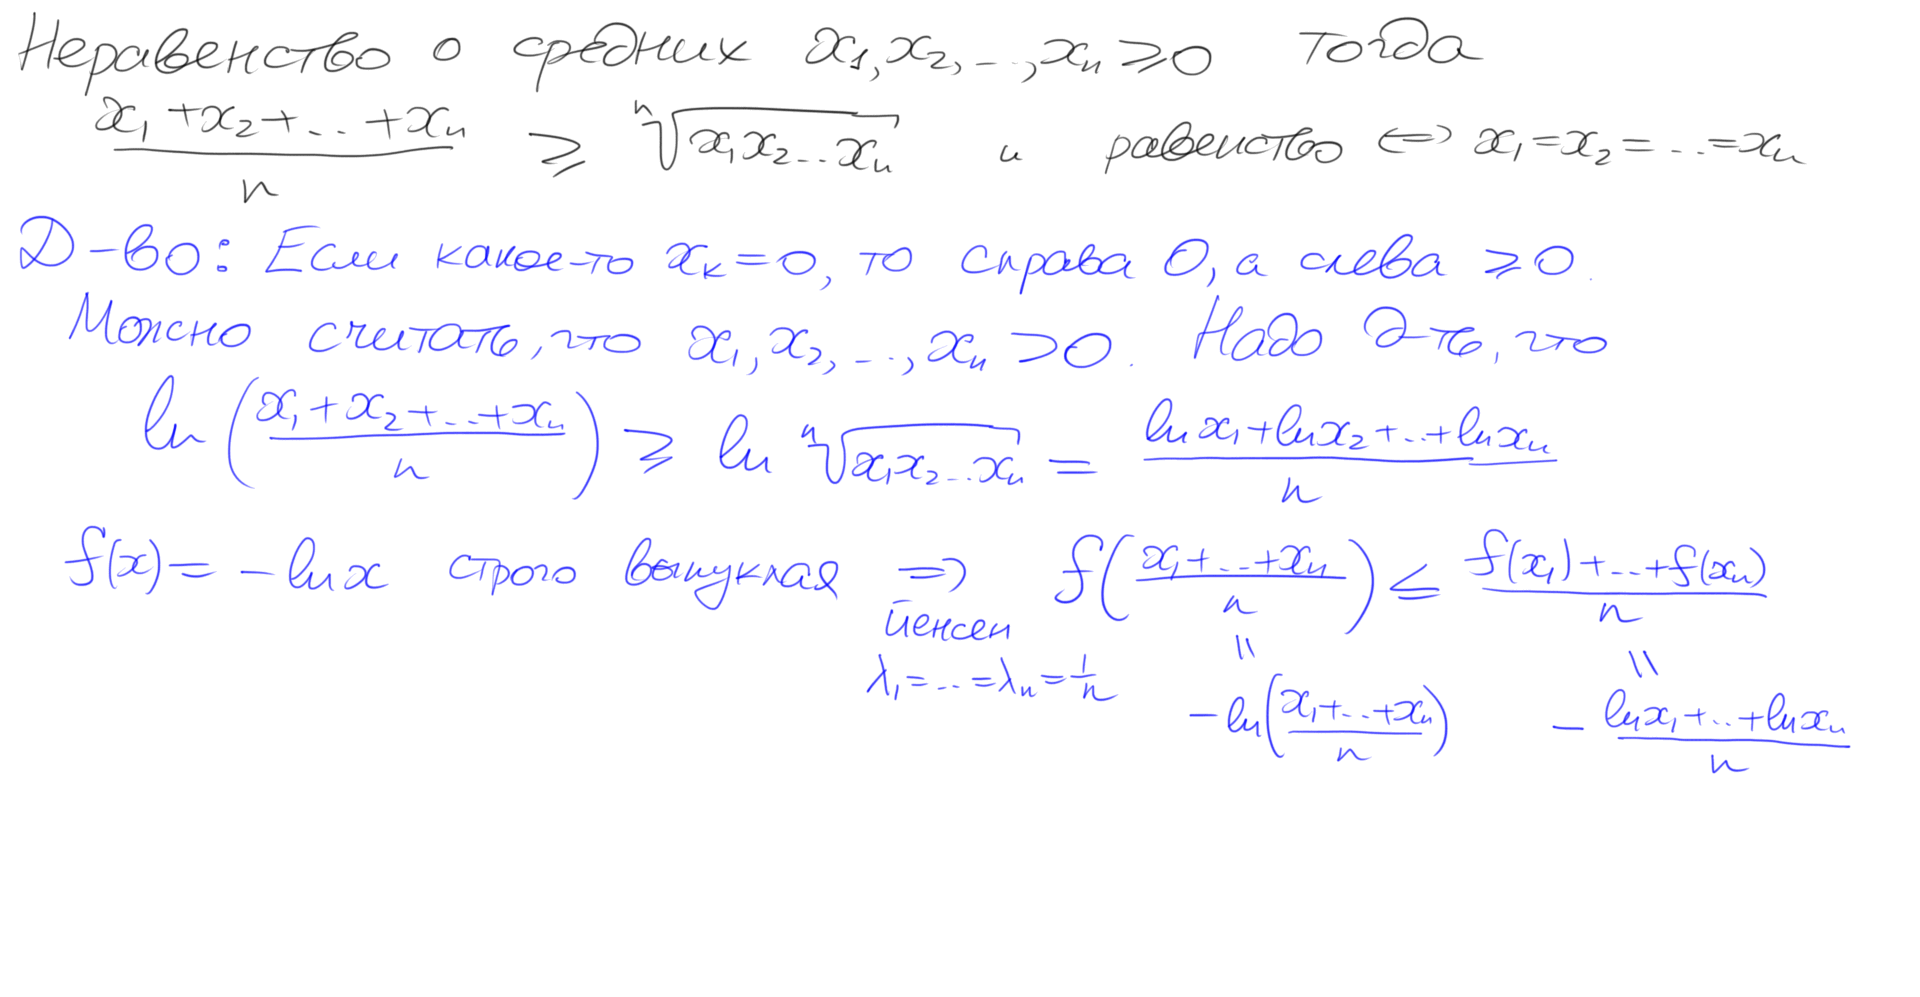 Неравенство о средних x₁, x₂, ..., xₙ ≥ 0 тогда
(x₁ + x₂ + ... + xₙ)/n ≥ ⁿ√(x₁x₂...xₙ) и равенство ⇔ x₁ = x₂ = ... = xₙ
Д-во: Если какое-то xₖ = 0, то справа 0, а слева ≥ 0.
Можно считать, что x₁, x₂, ..., xₙ > 0. Надо д-ть, что
ln((x₁ + x₂ + ... + xₙ)/n) ≥ ln ⁿ√(x₁x₂...xₙ) = (ln x₁ + ln x₂ + ... + ln xₙ)/n
f(x) = - ln x строго выпуклая ⇒ f((x₁ + ... + xₙ)/n) ≤ (f(x₁) + ... + f(xₙ))/n
Йенсен = =
λ₁ = ... = λₙ = 1/n - ln((x₁ + ... + xₙ)/n) - (ln x₁ + ... + ln xₙ)/n